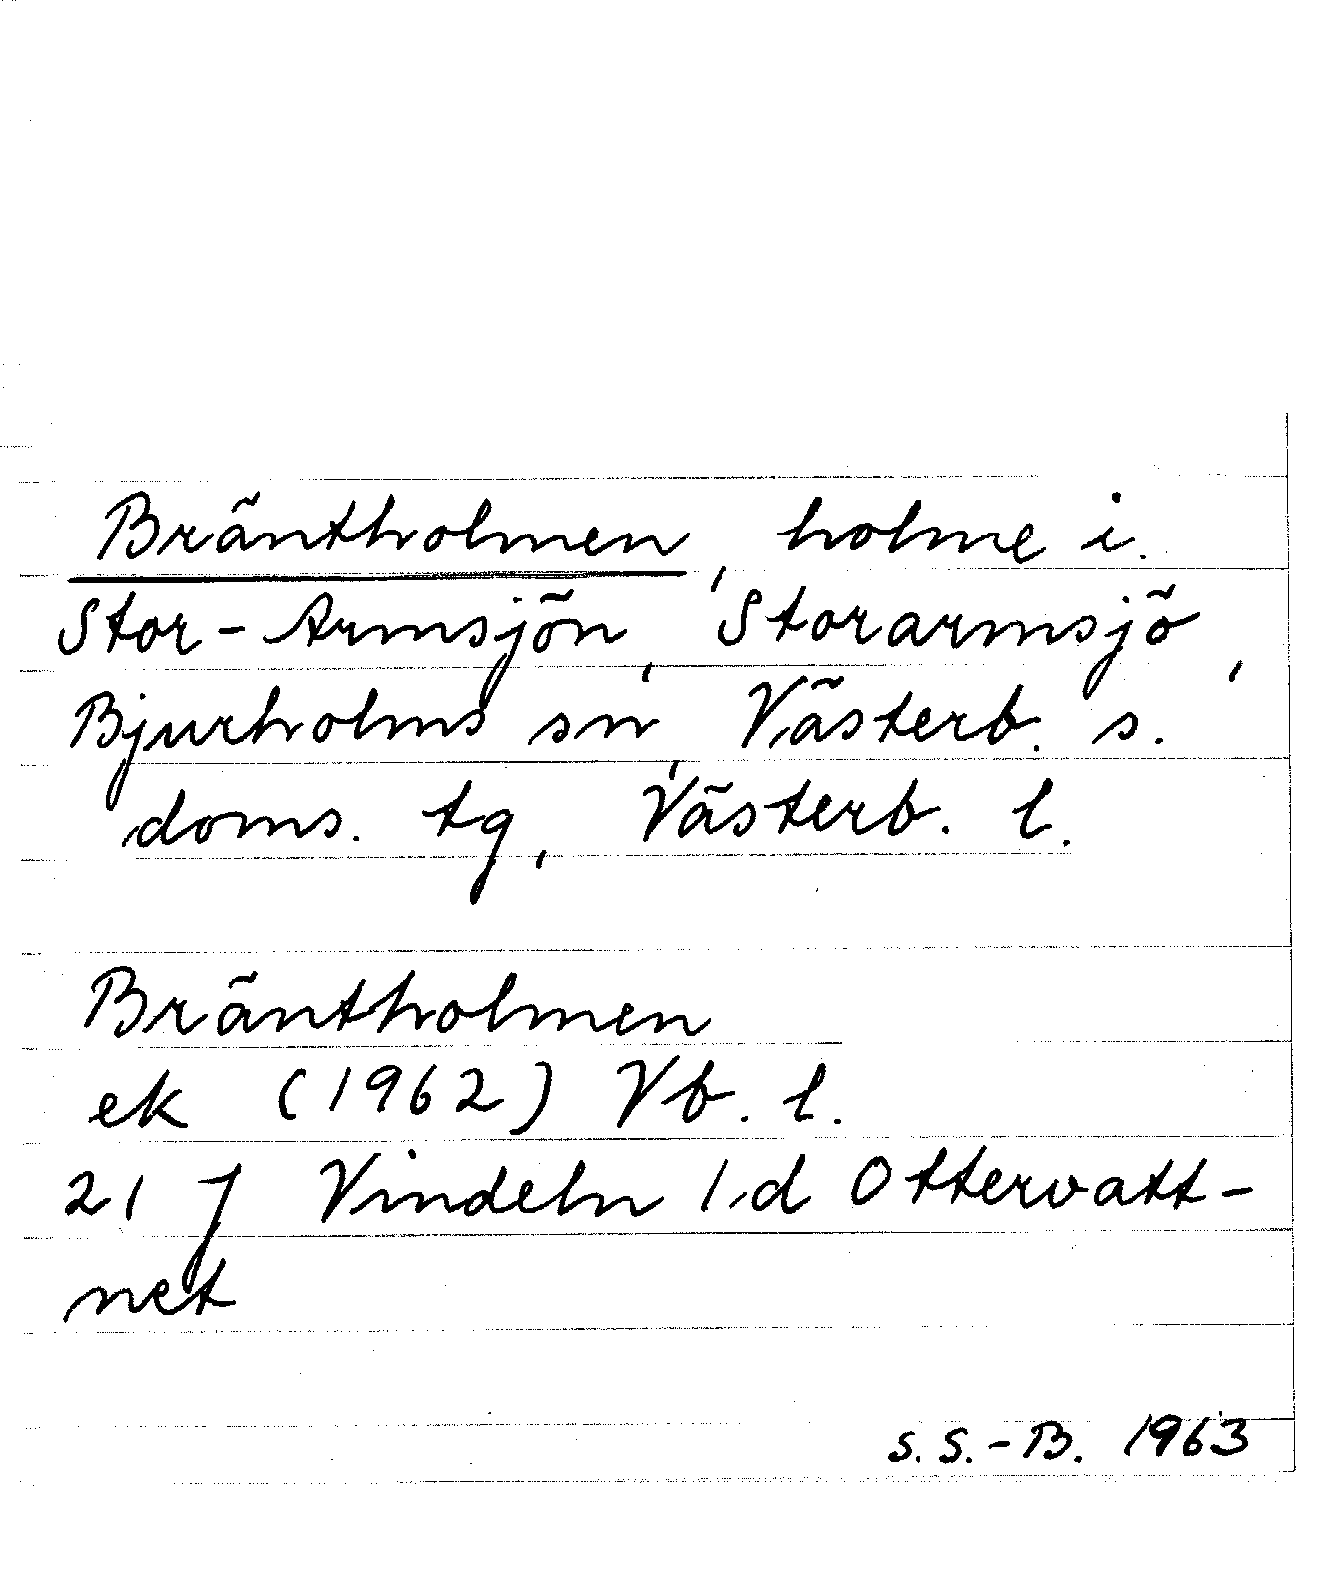 Bräntholmen, holme i.
Stor-Armsjön, Storarmsjö,
Bjurholms sn, Västerb. s.
doms. tg, Västerb. l.
Bräntholmen
ek (1962) Vb. l.
21 J Vindeln 1.d Ottervatt-
net
S. S.-B. 1963